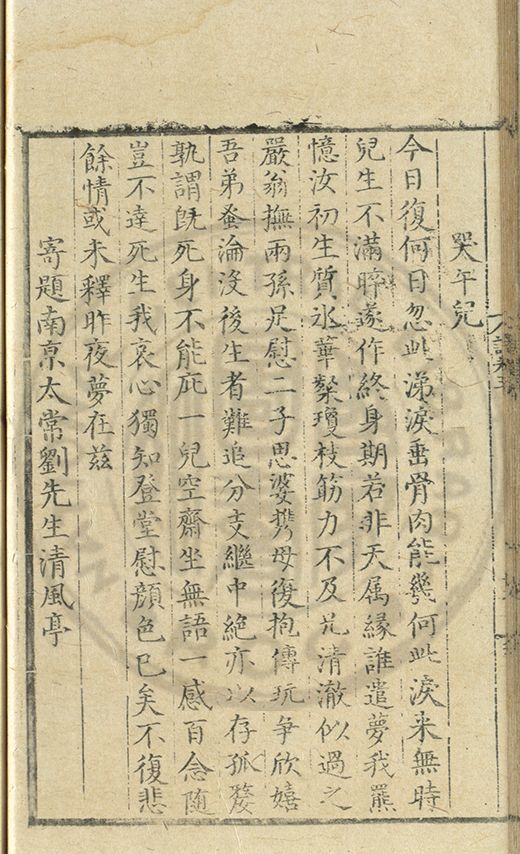 哭午兒
今日復何日忽此涕淚垂骨肉能幾何此淚来無時
兒生不滿晬遂作終身期若非天属緣誰遣夢我羆
憶汝初生質氷華粲瓊枝筋力不及兄清澈似過之
嚴翁撫兩孫足慰二子思婆携母復抱傳玩争欣嬉
吾弟蚤淪沒後生者難追分支繼中絶亦以存孤嫠
孰謂旣死身不能庇一兒空齋坐無語一感百念随
豈不達死生我哀心獨知登堂慰顔色已矣不復悲
餘情或未釋昨夜夢在茲
寄題南亰太常劉先生清風亭